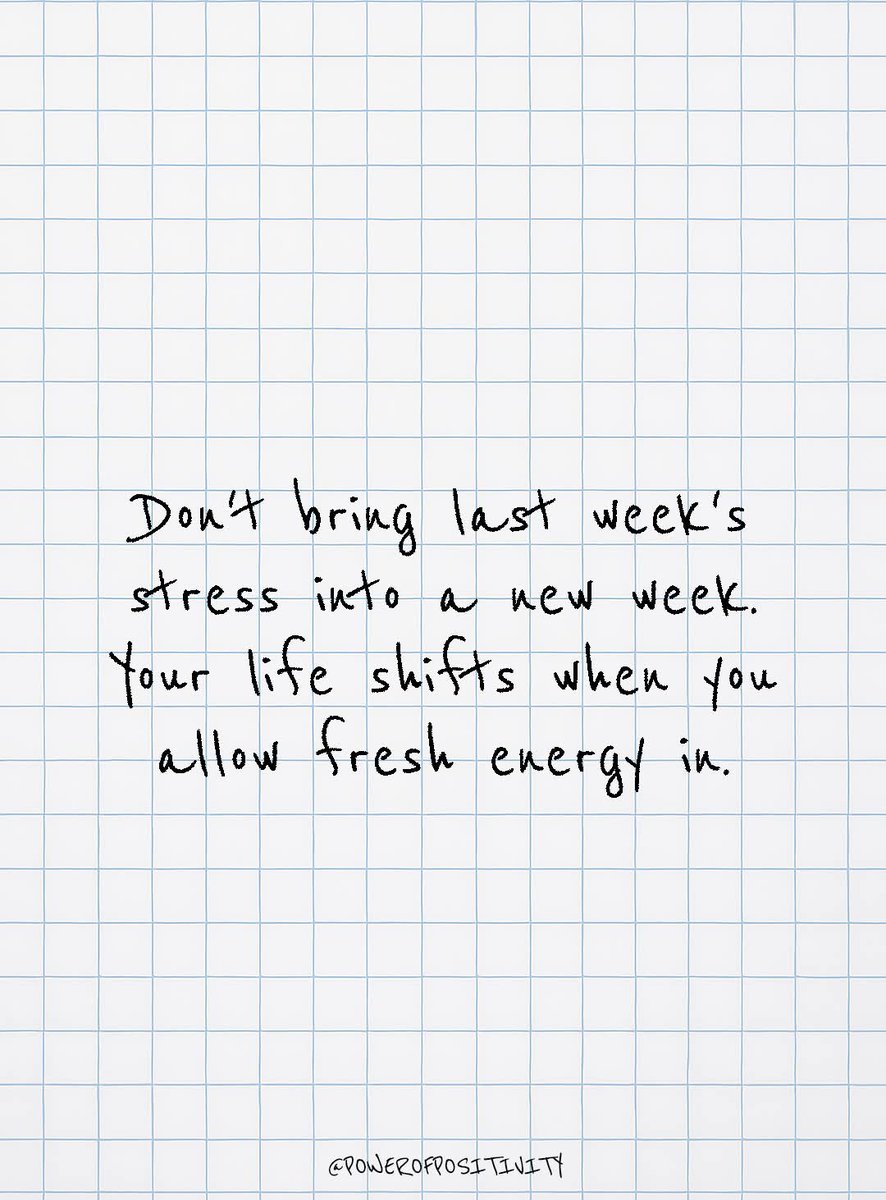 Don't bring last week's
stress into a new week.
Your life shifts when you
allow fresh energy in.
@POWEROFPOSITIVITY